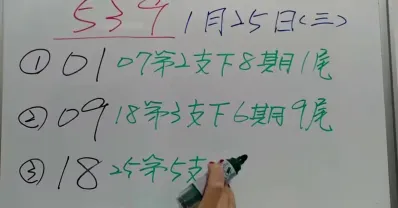 539 1月25日(三)
① 01 07第2支下8期1尾
② 09 18第3支下6期9尾
③ 18 25第5支